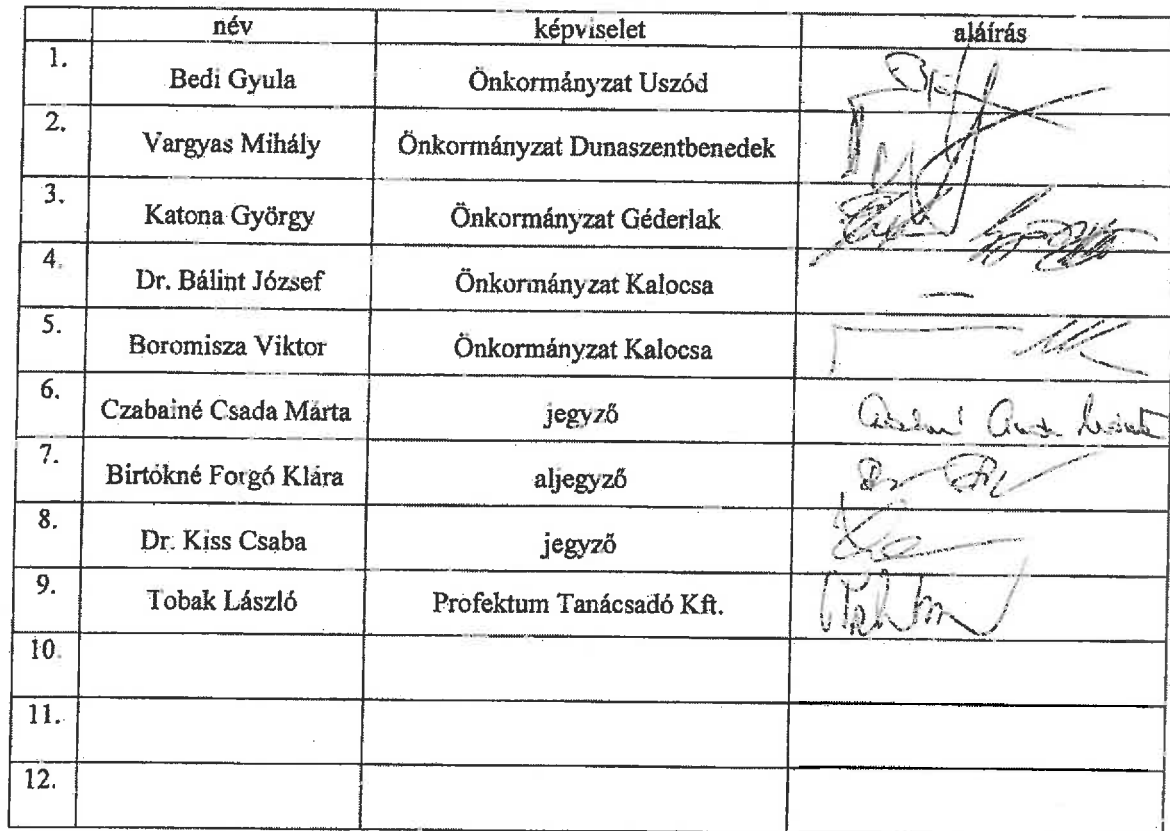 név képviselet aláírás
1. Bedi Gyula Önkormányzat Uszód
2. Vargyas Mihály Önkormányzat Dunaszentbenedek
3. Katona György Önkormányzat Géderlak
4. Dr. Bálint József Önkormányzat Kalocsa –
5. Boromisza Viktor Önkormányzat Kalocsa
6. Czabainé Csada Márta jegyző
7. Birtókné Forgó Klára aljegyző
8. Dr. Kiss Csaba jegyző
9. Tobak László Profektum Tanácsadó Kft.
10.
11.
12.